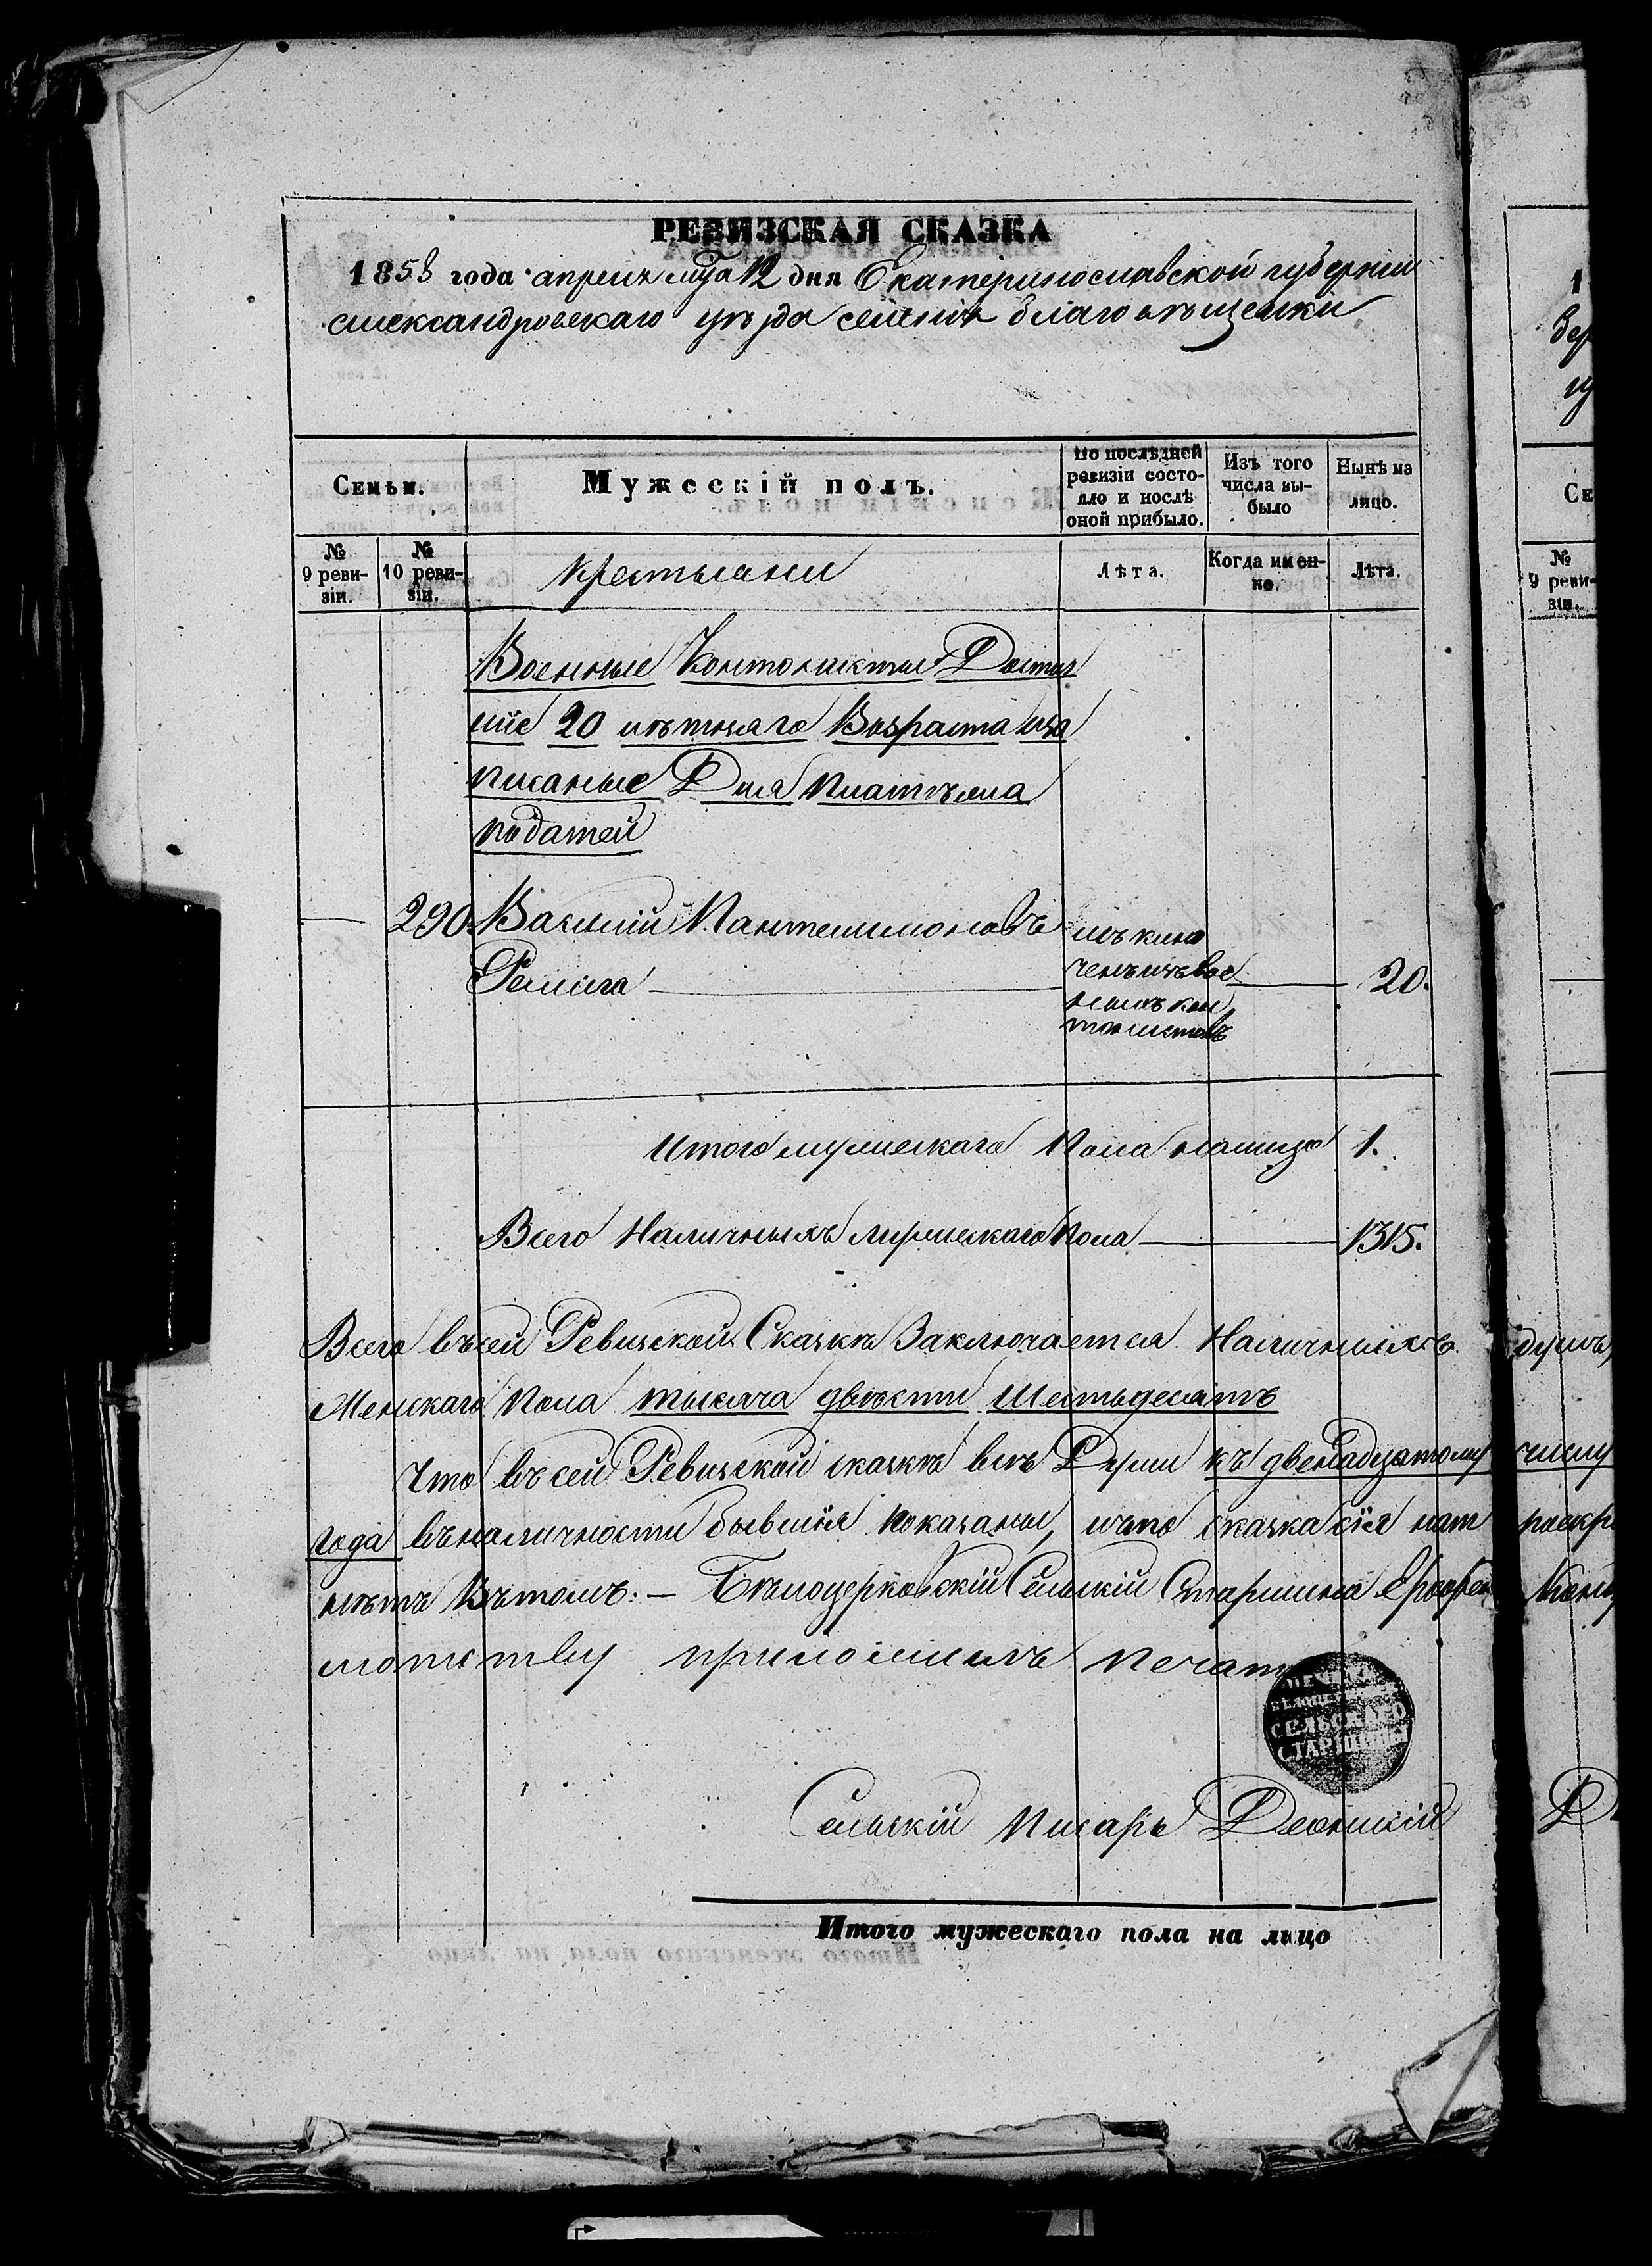 РЕВИЗСКАЯ СКАЗКА
1858 года апреля мца 12 дня Екатеринославской губернии
александровскаго уѣзда селения благовѣщенки
Семьи.
Мужескій полъ.
По послѣдней ревизіи состояло и послѣ оной прибыло.
Изъ того числа выбыло
Нынѣ на лицо.
№ 9 ревизіи.
№ 10 ревизіи.
крестьяни
Лѣта.
Когда именно.
Лѣта.
Военные Контонисты Достиг
шіе 20 лѣтняго Возраста иза
писаные Для Платѣжа
податей
290. Василій Пантелимоновъ
20.
Итого мужескаго Пола налицо 1.
Всего Наличныхъ мужескаго Пола 1315.
Всего въсей Ревизской Сказкѣ Заключается Наличныхъ душъ,
Женскаго Пола тысяча двѣсти Шестьдесятъ
Что въсей Ревизской сказкѣ всѣ Души къ двенадцатому числу
года въналичности бывшія показаны, ичто сказка сія нат
нѣтъ Вътомъ. — Бѣлоцерковскій Сельскій Старшина Ерофей
приложилъ печать
ПЕЧАТЬ
СЕЛЬСКАГО
СТАРШИНЫ
Сельскій Писарь
Итого мужескаго пола на лицо
1
№
9 реви-
зіи.